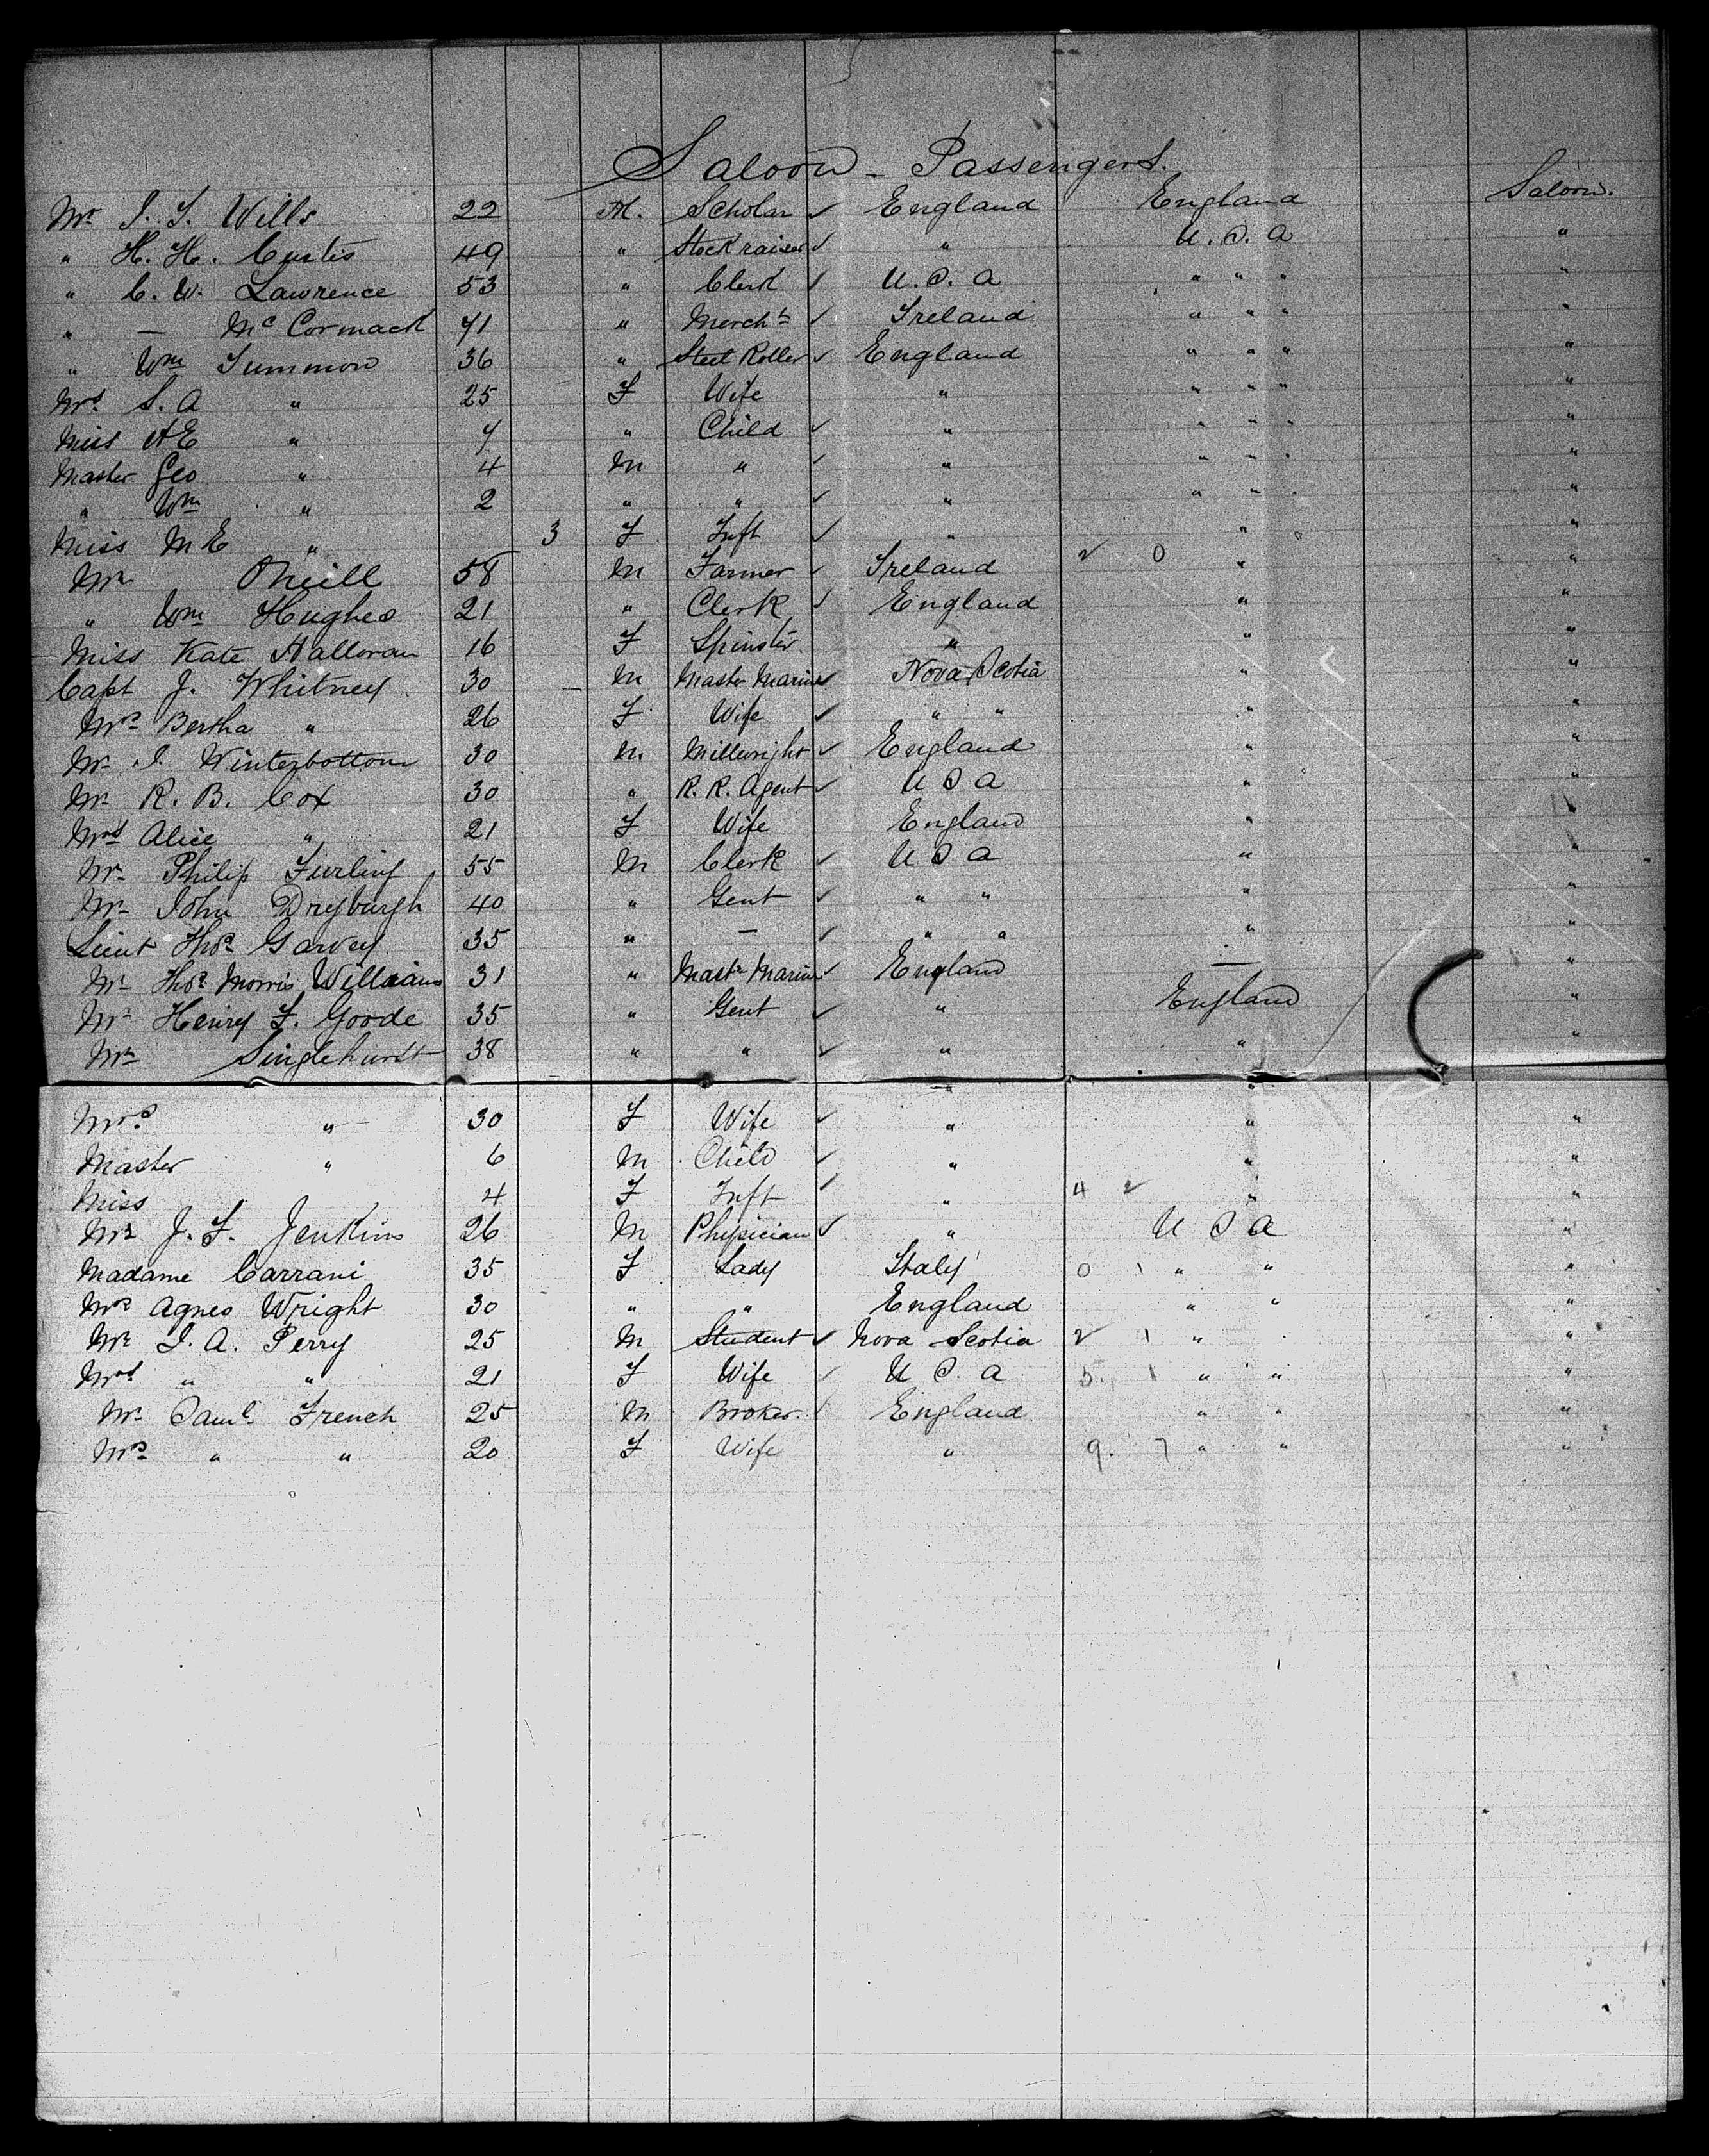 Saloon - Passengers.
Mr J. T. Wills 22 M. Scholar ✓ England England Saloon.
" H. H. Curtis 49 " Stock raiser ✓ " U.S.A "
" C. W. Lawrence 53 " Clerk ✓ U.S.A " " " "
" — McCormack 71 " Mercht ✓ Ireland " " " "
" Wm Summon 36 " Steel Roller ✓ England " " " "
Mrs S. A " 25 F Wife " " " " "
Miss A E " 7 " Child ✓ " " " " "
Master Geo " 4 M " ✓ " " " " "
" Wm " 2 " " ✓ " " " " "
Miss M E " 3 F Inft ✓ " " "
Mr O'Neill 58 M Farmer ✓ Ireland 2 0 " "
" Wm Hughes 21 " Clerk ✓ England " "
Miss Kate Halloran 16 F Spinster " " "
Capt J. Whitney 30 — M Master Mariner ✓ Nova Scotia " "
Mrs Bertha " 26 F Wife ✓ " " " "
Mr J. Winterbottom 30 M Millwright ✓ England " "
Mr R. B. Cox 30 " R. R. Agent ✓ U S A " "
Mrs Alice " 21 F Wife England " "
Mr Philip Furling 55 M Clerk ✓ U S A " "
Mr John Dryburgh 40 " Gent ✓ " " " "
Lieut Thos Garvey 35 " — ✓ " " " "
Mr Thos Morris Williams 31 " Mastr Mariner ✓ England — "
Mr Henry F. Goode 35 " Gent ✓ " England "
Mr Singlehurst 38 " " ✓ " " "
Mrs " 30 F Wife ✓ " " "
Master " 6 M Child ✓ " " "
Miss 4 F Inft ✓ " 4 2 " "
Mr J. F. Jenkins 26 M Physician ✓ " U S A "
Madame Carrani 35 F Lady Italy 0 1 " " "
Mrs Agnes Wright 30 " " England " " "
Mr J. A. Perry 25 M Student ✓ Nova Scotia 2 1 " "
Mrs " " 21 F Wife ✓ U S. A 5. 1 " " "
Mr Saml French 25 M Broker England " " "
Mrs " " 20 F Wife " 9. 7 " " "